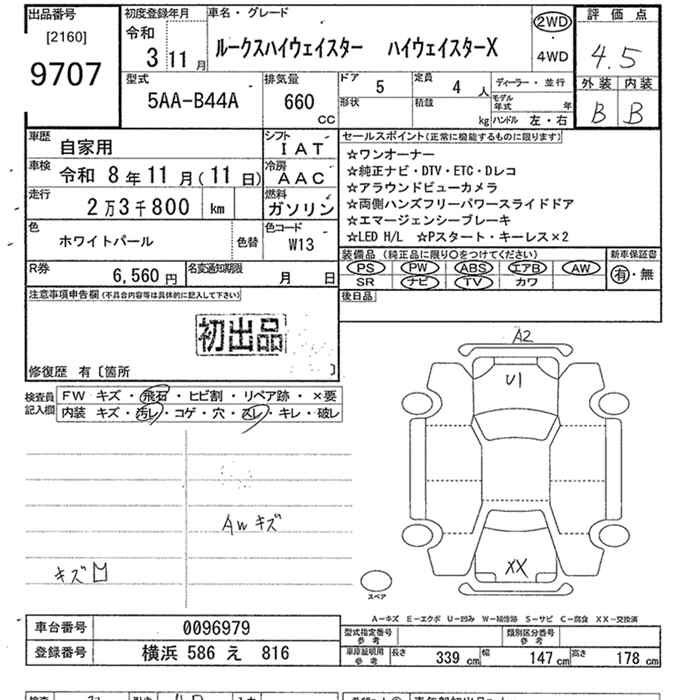 出品番号
[2160]
9707
初度登録年月
令和
3 11月
車名・グレード
ルークスハイウェイスター ハイウェイスターX
2WD
・
4WD
評価点
4.5
外装 内装
B B
型式
5AA-B44A
排気量
660
cc
ドア 5
定員 4 人
形状
積載 kg
ディーラー・並行
モデル年式 年
ハンドル 左・右
車歴 自家用
シフト IAT
車検 令和 8年11月(11日)
冷房 AAC
走行 2万3千800 km
燃料 ガソリン
色 ホワイトパール
色替
色コード W13
セールスポイント(正常に機能するものに限ります)
☆ワンオーナー
☆純正ナビ・DTV・ETC・Dレコ
☆アラウンドビューカメラ
☆両側ハンズフリーパワースライドドア
☆エマージェンシーブレーキ
☆LED H/L ☆Pスタート・キーレス×2
装備品(純正品に限り〇をつけてください)
PS PW ABS エアB AW
SR ナビ TV カワ
新車保証書
有・無
R券 6,560円
名変通知期限 月 日
後日品
注意事項申告欄(不具合内容等は具体的に記入して下さい)
初出品
修復歴 有〔箇所 〕
検査員
記入欄
FW キズ・飛石・ヒビ割・リペア跡・×要
内装 キズ・汚レ・コゲ・穴・スレ・キレ・破レ
AWキズ
キズ
A2
U1
XX
スペア
A−キズ E−エクボ U−凹み W−補修跡 S−サビ C−腐食 XX−交換済
車台番号 0096979
登録番号 横浜 586 え 816
型式指定番号
参考
類別区分番号
参考
車庫証明用
参考
長さ 339cm 幅 147cm 高さ 178cm